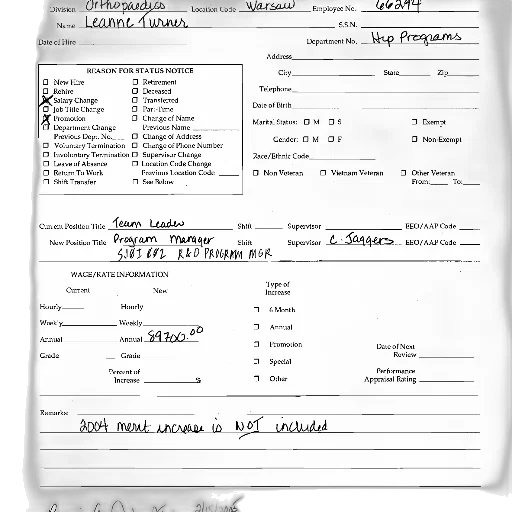 Division Orthopaedics Location Code Warsaw Employee No. 66294
Name Leanne Turner S.S.N.
Date of Hire Department No. Hip Programs
Address
REASON FOR STATUS NOTICE
City State Zip
Telephone
Date of Birth
☐ New Hire ☐ Retirement
☐ Rehire ☐ Deceased
☒ Salary Change ☐ Transferred
☐ Job Title Change ☐ Part-Time
☒ Promotion ☐ Change of Name
☐ Department Change Previous Name
Previous Dept. No. ☐ Change of Address
☐ Voluntary Termination ☐ Change of Phone Number
☐ Involuntary Termination ☐ Supervisor Change
☐ Leave of Absence ☐ Location Code Change
☐ Return To Work Previous Location Code
☐ Shift Transfer ☐ See Below
Marital Status: ☐ M ☐ S ☐ Exempt
Gender: ☐ M ☐ F ☐ Non-Exempt
Race/Ethnic Code
☐ Non Veteran ☐ Vietnam Veteran ☐ Other Veteran
From: To:
Current Position Title Team Leader Shift Supervisor EEO/AAP Code
New Position Title Program Manager Shift Supervisor C. Jaggers EEO/AAP Code
R&D PROGRAM MGR
WAGE/RATE INFORMATION
Current New
Hourly Hourly
Weekly Weekly
Annual Annual 89700.00
Grade Grade
Percent of
Increase %
Type of
Increase
☐ 6 Month
☐ Annual
☐ Promotion
☐ Special
☐ Other
Date of Next
Review
Performance
Appraisal Rating
Remarks:
2004 merit increase is NOT included